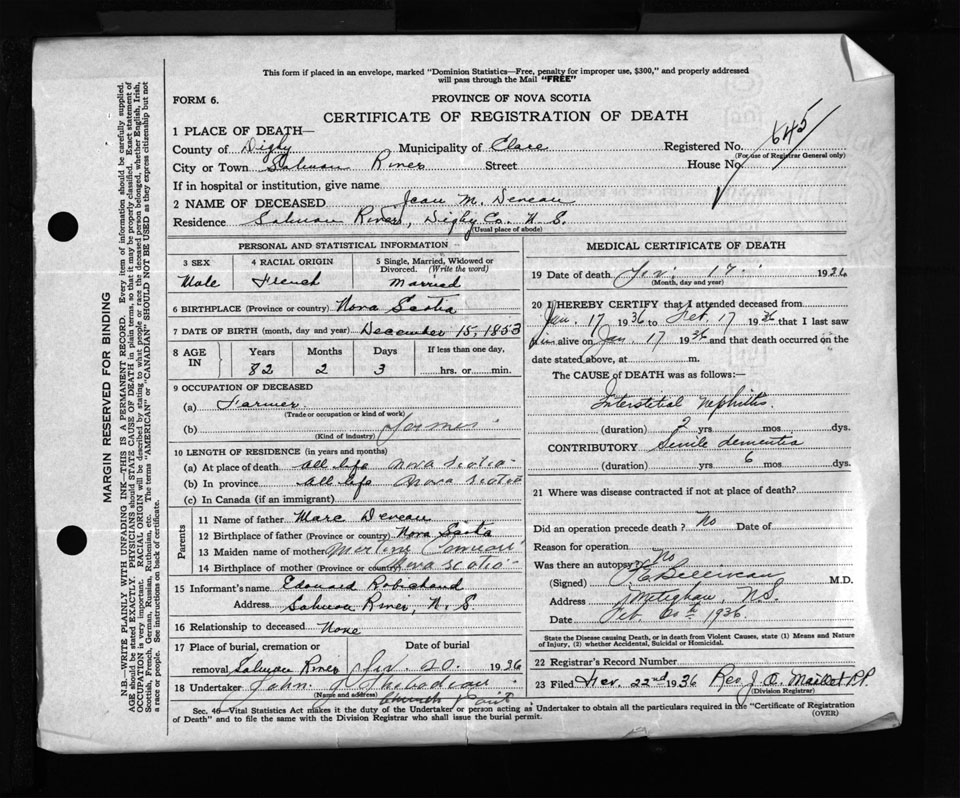 This form if placed in an envelope, marked "Dominion Statistics—Free, penalty for improper use, $300," and properly addressed
will pass through the Mail "FREE"
FORM 6. PROVINCE OF NOVA SCOTIA
CERTIFICATE OF REGISTRATION OF DEATH
1 PLACE OF DEATH—
County of Digby Municipality of Clare Registered No. 645
(For use of Registrar General only)
City or Town Salmon River Street House No.
If in hospital or institution, give name
2 NAME OF DECEASED Jean M. Deveau
Residence Salmon River, Digby Co. N. S.
(Usual place of abode)
PERSONAL AND STATISTICAL INFORMATION
3 SEX 4 RACIAL ORIGIN 5 Single, Married, Widowed or Divorced. (Write the word)
Male French Married
6 BIRTHPLACE (Province or country) Nova Scotia
7 DATE OF BIRTH (month, day and year) December 15-1853
8 AGE IN Years Months Days If less than one day,
82 2 3 hrs. or min.
9 OCCUPATION OF DECEASED
(a) Farmer
(Trade or occupation or kind of work)
(b)
(Kind of industry)
10 LENGTH OF RESIDENCE (in years and months)
(a) At place of death all life Nova Scotia
(b) In province all life Nova Scotia
(c) In Canada (if an immigrant)
Parents
11 Name of father Marc Deveau
12 Birthplace of father (Province or country) Nova Scotia
13 Maiden name of mother Comeau
14 Birthplace of mother (Province or country) Nova Scotia
15 Informant's name Edouard Robichaud
Address Salmon River, N. S.
16 Relationship to deceased None
17 Place of burial, cremation or Date of burial
removal Salmon River 20 1936
18 Undertaker John Thibodeau
(Name and address) Church Point
MEDICAL CERTIFICATE OF DEATH
19 Date of death 17 1936
(Month, day and year)
20 I HEREBY CERTIFY that I attended deceased from
Jan. 17 1936 to Feb. 17 1936 that I last saw
him alive on Jan. 17 1936 and that death occurred on the
date stated above, at m.
The CAUSE of DEATH was as follows:—
Interstetal Nephritis
(duration) 2 yrs mos. dys.
CONTRIBUTORY Senile dementia
(duration) yrs 6 mos. dys.
21 Where was disease contracted if not at place of death?
Did an operation precede death? No Date of
Reason for operation
Was there an autopsy? No
(Signed) M.D.
Address Meteghan, N.S.
Date Feb. 1936.
State the Disease causing Death, or in death from Violent Causes, state (1) Means and Nature
of Injury, (2) whether Accidental, Suicidal or Homicidal.
22 Registrar's Record Number
23 Filed 22nd 1936 Rev. J. O. Maillet P.P.
(Division Registrar)
Sec. 46—Vital Statistics Act makes it the duty of the Undertaker or Person acting as Undertaker to obtain all the particulars required in the "Certificate of Registration
of Death" and to file the same with the Division Registrar who shall issue the burial permit. (OVER)
MARGIN RESERVED FOR BINDING
N.B.—WRITE PLAINLY WITH UNFADING INK—THIS IS A PERMANENT RECORD. Every item of information should be carefully supplied.
AGE should be stated EXACTLY. PHYSICIANS should STATE CAUSE OF DEATH in plain terms, so that it may be properly classified. Exact statement of
OCCUPATION is very important. RACIAL ORIGIN will be described by stating to what people or race the deceased person belonged, whether English, Irish,
Scottish, French, German, Russian, Ruthenian, etc. The terms "AMERICAN" or "CANADIAN" SHOULD NOT BE USED as they express citizenship but not
a race or people. See instructions on back of certificate.